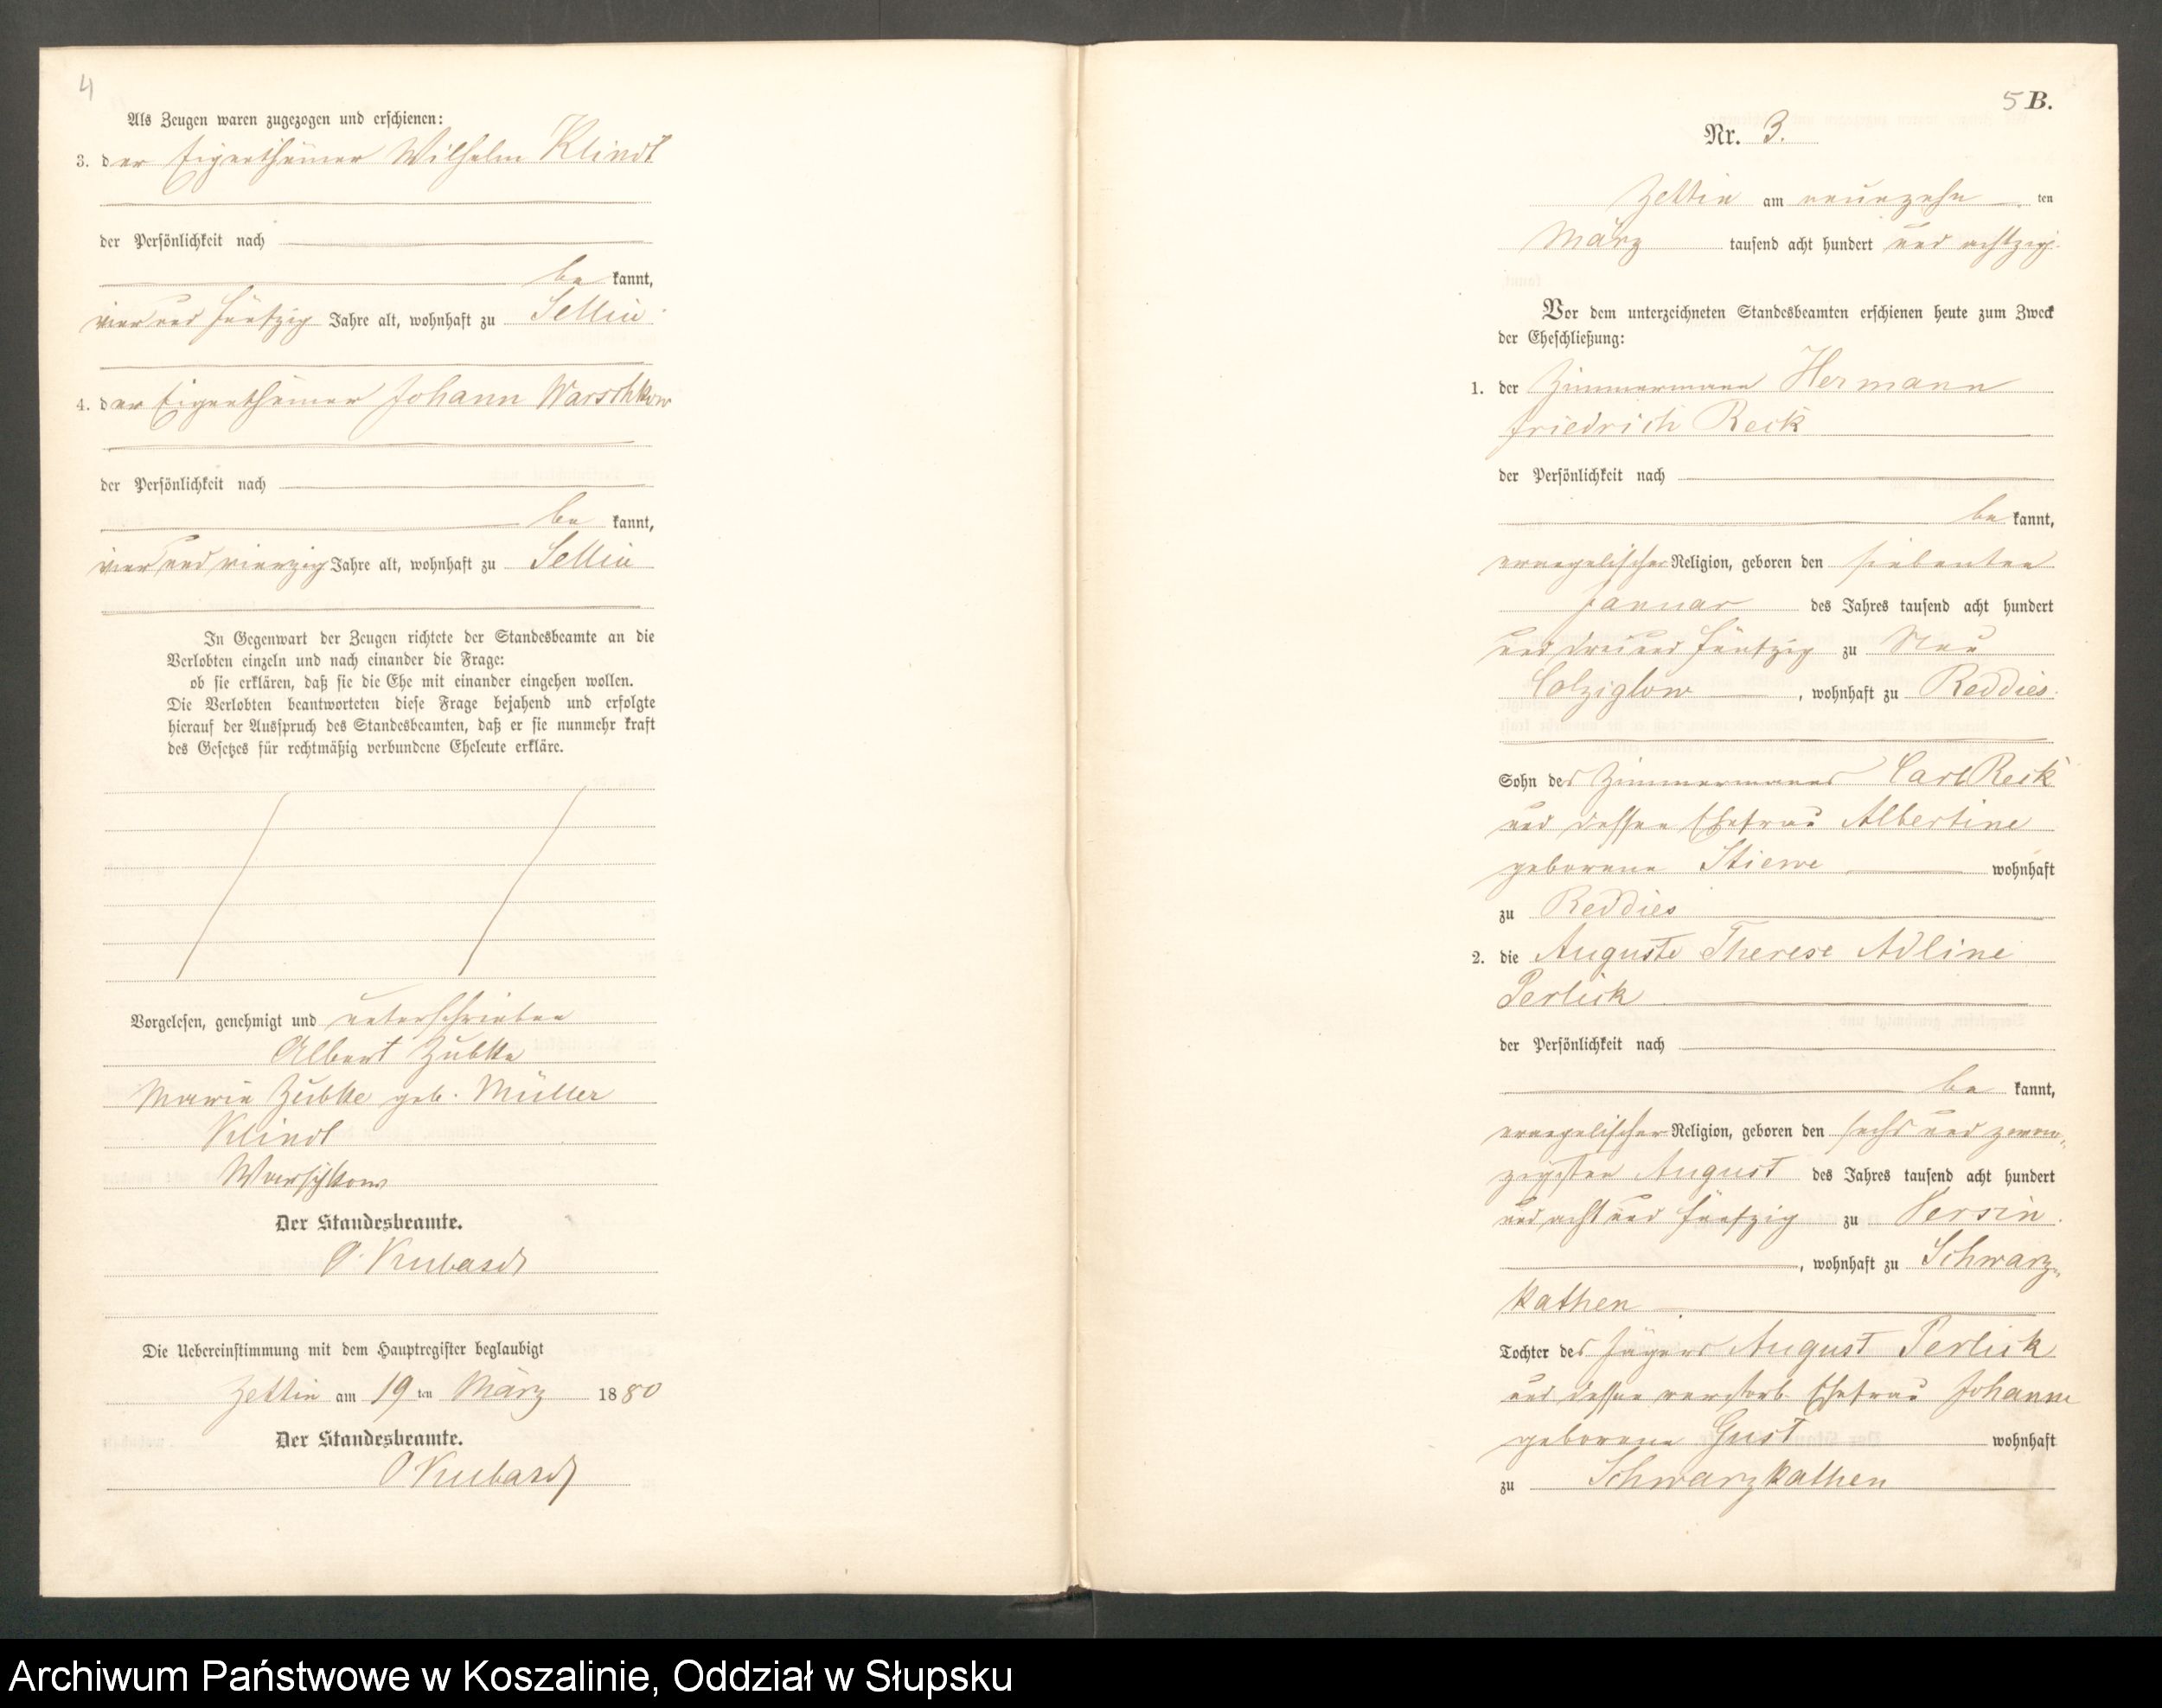 4
Als Zeugen waren zugezogen und erschienen:
3. der Eigenthümer Wilhelm Klindt
der Persönlichkeit nach
be kannt,
vier und fünfzig Jahre alt, wohnhaft zu Sellin
4. der Eigenthümer Johann Warschkow
der Persönlichkeit nach
be kannt,
vier und vierzig Jahre alt, wohnhaft zu Sellin
In Gegenwart der Zeugen richtete der Standesbeamte an die
Verlobten einzeln und nach einander die Frage:
ob sie erklären, daß sie die Ehe mit einander eingehen wollen.
Die Verlobten beantworteten diese Frage bejahend und erfolgte
hierauf der Ausspruch des Standesbeamten, daß er sie nunmehr kraft
des Gesetzes für rechtmäßig verbundene Eheleute erkläre.
Vorgelesen, genehmigt und unterschrieben
Albert Zubke
Marie Zubke geb. Müller
Klindt
Warschkow
Der Standesbeamte.
Die Uebereinstimmung mit dem Hauptregister beglaubigt
Zettin am 19 ten März 1880
Der Standesbeamte.
5 B.
Nr. 3.
Zettin am neunzehn ten
März tausend acht hundert und achtzig.
Vor dem unterzeichneten Standesbeamten erschienen heute zum Zweck
der Eheschließung:
1. der Zimmermann Hermann
Friedrich Reck
der Persönlichkeit nach
be kannt,
evangelischer Religion, geboren den siebenten
Januar des Jahres tausend acht hundert
und drei und fünfzig zu Neu
Colziglow, wohnhaft zu Reddies.
Sohn des Zimmermanns Carl Reck
und dessen Ehefrau Albertine
geborene Stiewe wohnhaft
zu Reddies
2. die Auguste Therese Adline
Perlick
der Persönlichkeit nach
be kannt,
evangelischer Religion, geboren den sechs und zwan-
zigsten August des Jahres tausend acht hundert
und acht und fünfzig zu Versin.
, wohnhaft zu Schwarz-
kathen
Tochter des Jägers August Perlick
und dessen verstorb. Ehefrau Johanne
geborene Gust wohnhaft
zu Schwarzkathen
Archiwum Państwowe w Koszalinie, Oddział w Słupsku